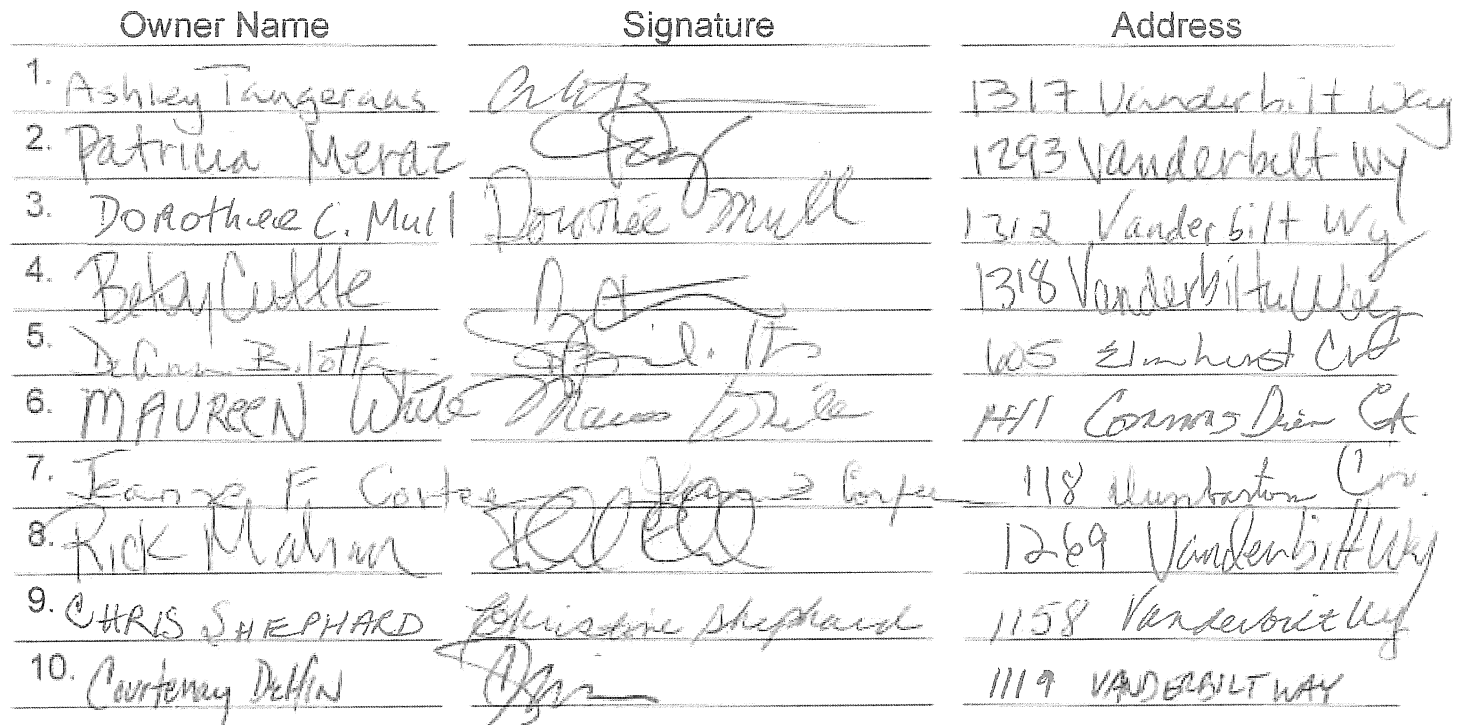 Owner Name Signature Address
1. Ashley Tangeraas 1317 Vanderbilt Way
2. Patricia Meraz 1293 Vanderbilt Wy
3. Dorothee C. Mull Dorothée Mull 1312 Vanderbilt Wy
4. Betsy Cuttle 1318 Vanderbilt Way
5. DeAnn Bilotta 605 Elmhurst Cir
6. MAUREEN White 1411 Commons Drive
7. Jeanne F. 118 Dunbarton Cir.
8. Rick 1269 Vanderbilt Wy
9. CHRIS SHEPHARD Christine Shephard 1158 Vanderbilt Wy
10. Courtenay Delfin 1119 VANDERBILT WAY